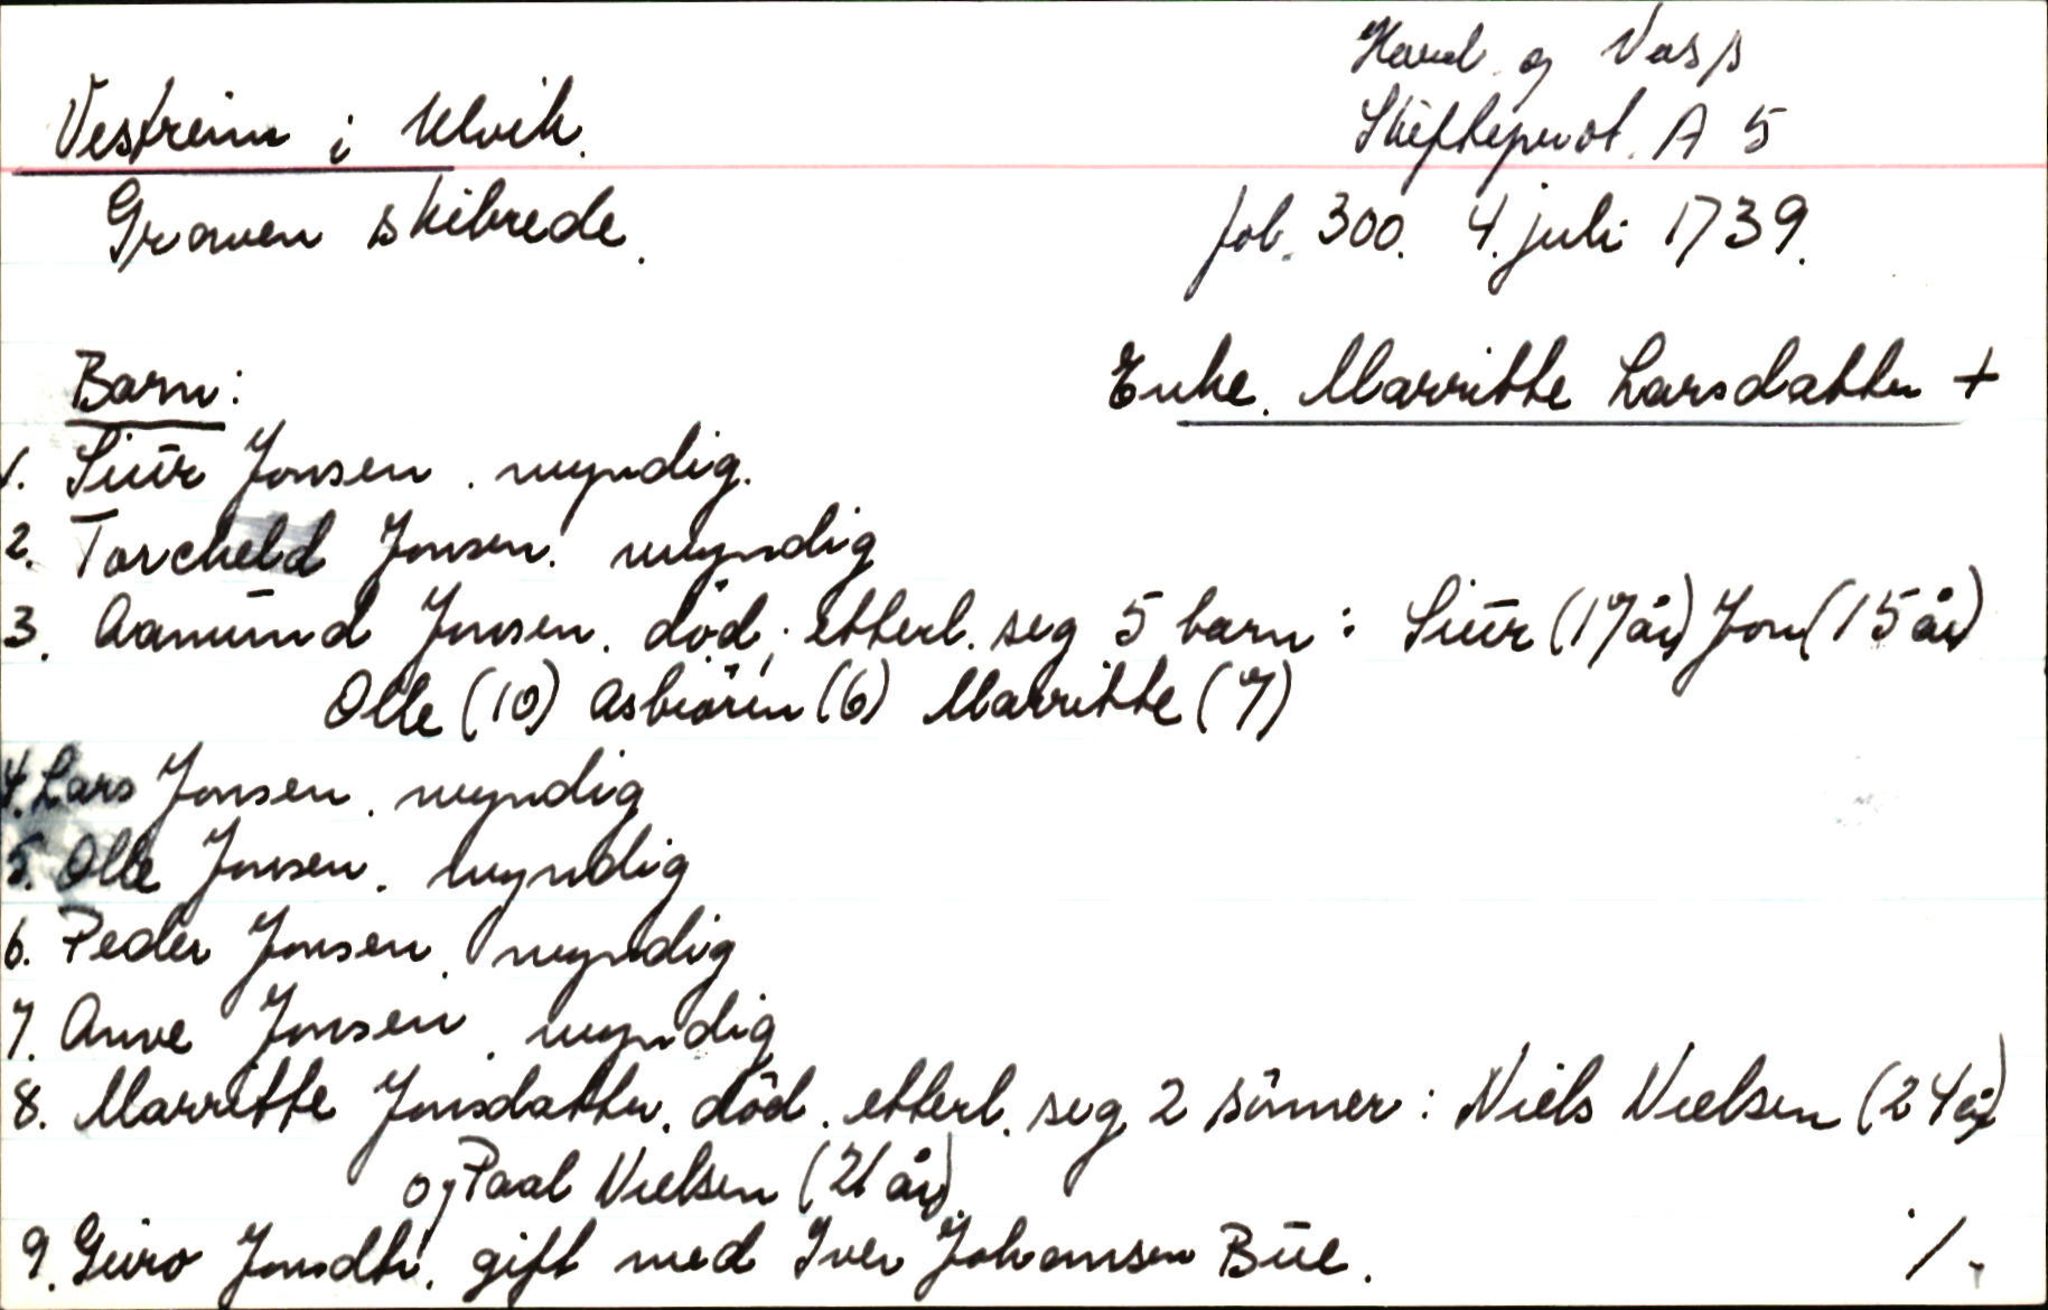 Hard. og Voss
Vestreim i Ulvik.
Skifteprot. A 5
Graven skibrede.
fol. 300. 4. juli 1739.
Barn:
Enke. Marritte Larsdatter +
1. Siūr Jonsen. myndig.
2. Torcheld Jonsen. myndig
3. Aamūnd Jonsen. död; etterl. seg 5 barn: Siūr (17 år) Jon (15 år)
Olle (10) Asbiörn (6) Marritte (7)
4. Lars Jonsen. myndig
5. Olle Jonsen. myndig
6. Peder Jonsen. myndig
7. Anve Jonsen. myndig
8. Marritte Jonsdatter. död. etterl. seg 2 sönner: Niels Nielsen (24 år)
og Paal Nielsen (21 år)
9. Gūro Jonsdtr. gift med Iver Johansen Būe.